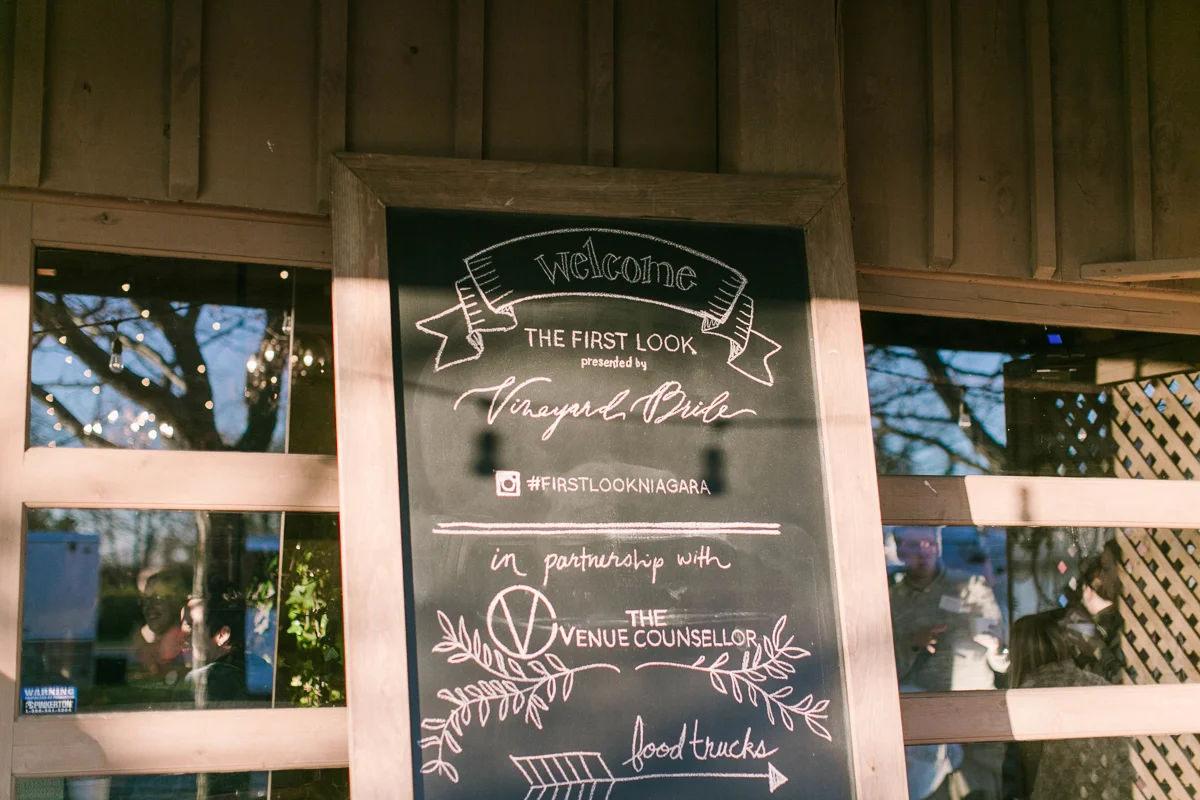 welcome
THE FIRST LOOK
presented by
Vineyard Bride
#FIRSTLOOKNIAGARA
in partnership with
THE
VENUE COUNSELLOR
food trucks
WARNING
PINKERTON